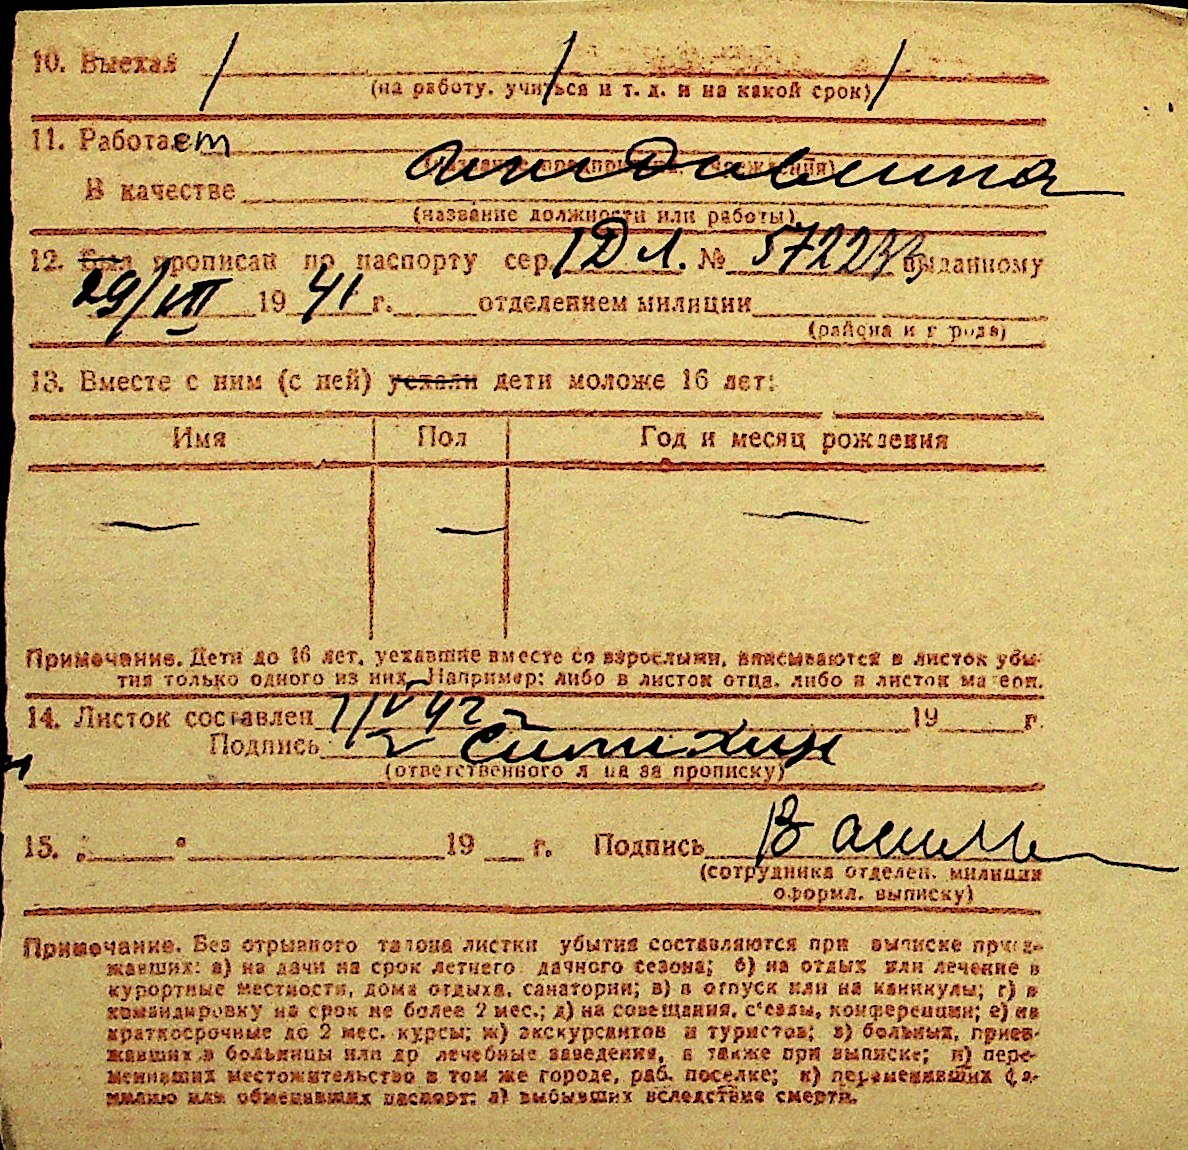 10. Выехал
(на работу, учиться и т. д. и на какой срок)
11. Работает
иждивенка
В качестве
(название должности или работы)
12. Был прописан по паспорту сер. IДЛ. № 572233 выданному
29/VIII 1941 г. отделением милиции
(района и города)
13. Вместе с ним (с ней) уехали дети моложе 16 лет:
Имя Пол Год и месяц рождения
Примечание. Дети до 16 лет, уехавшие вместе со взрослыми, вписываются в листок убы-
тия только одного из них. Например: либо в листок отца, либо в листок матери.
14. Листок составлен 7/V 42 г. 19 г.
Подпись
(ответственного лица за прописку)
15. „ " 19 г. Подпись
(сотрудника отделен. милиции
оформл. выписку)
Примечание. Без отрывного талона листки убытия составляются при выписке приез-
жавших: а) на дачи на срок летнего дачного сезона; б) на отдых или лечение в
курортные местности, дома отдыха, санатории; в) в отпуск или на каникулы; г) в
командировку на срок не более 2 мес.; д) на совещания, съезды, конференции; е) на
краткосрочные до 2 мес. курсы; ж) экскурсантов и туристов; з) больных, приез-
жавших в больницы или др лечебные заведения, а также при выписке; и) пере-
менивших местожительство в том же городе, раб. поселке; к) переменивших фа-
милию или обменявших паспорт; л) выбывших вследствие смерти.